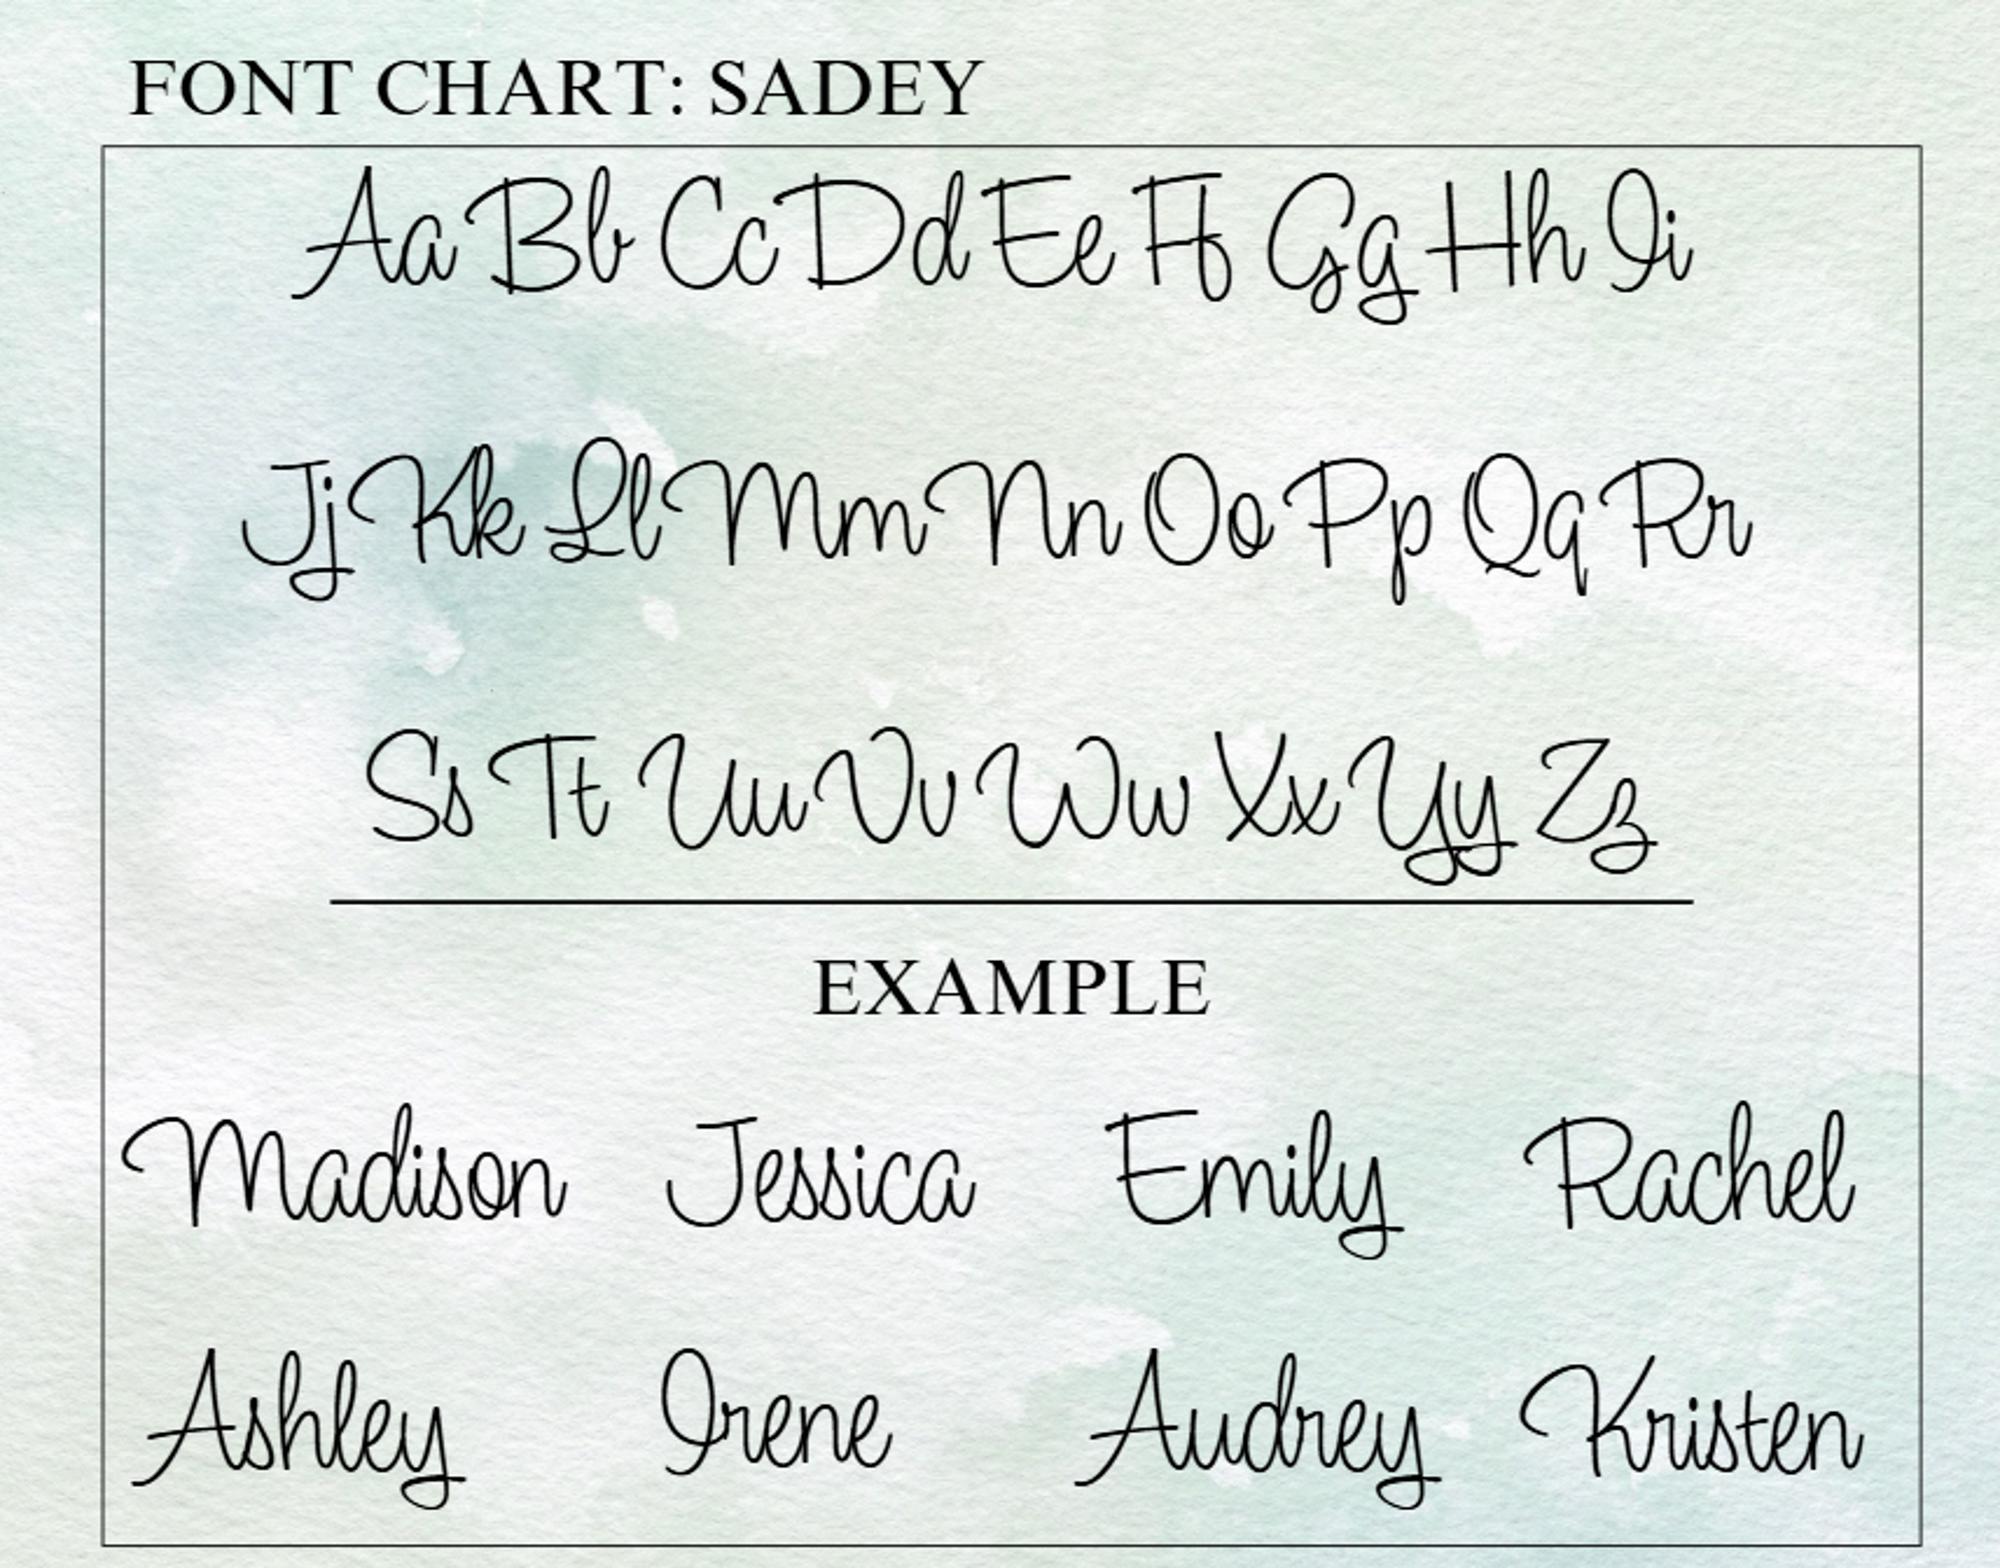 FONT CHART: SADEY
Aa Bb Cc Dd Ee Ff Gg Hh Ii
Jj Kk Ll Mm Nn Oo Pp Qq Rr
Ss Tt Uu Vv Ww Xx Yy Zz
EXAMPLE
Madison Jessica Emily Rachel
Ashley Irene Audrey Kristen